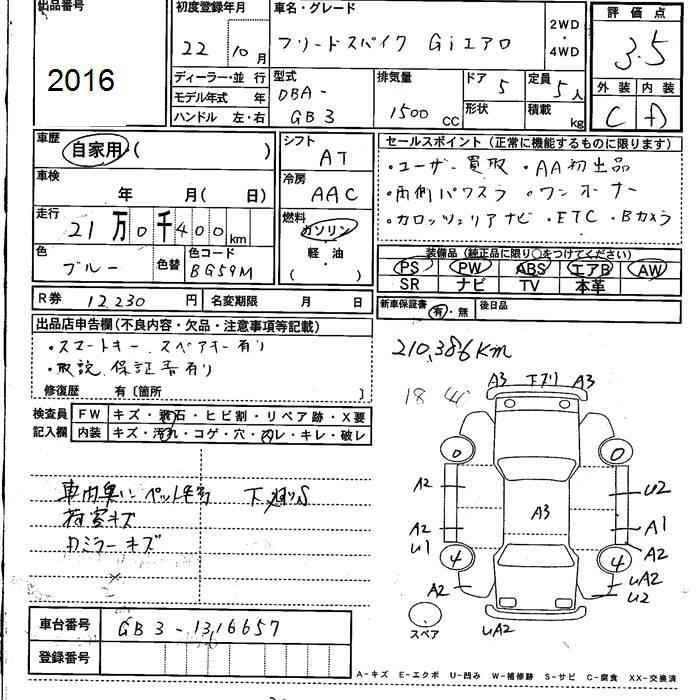 出品番号
2016
初度登録年月
22年10月
車名・グレード
フリードスパイク Giエアロ
2WD・4WD
評価点
3.5
外装 内装
C D
ディーラー・並行
モデル年式 年
ハンドル 左・右
型式
DBA-
GB3
排気量
1500 CC
ドア 5
形状
定員 5人
積載 kg
車歴
自家用(  )
車検
年 月( 日)
走行
21万0千400km
色
ブルー
色替
色コード
BG59M
シフト
AT
冷房
AAC
燃料
ガソリン
軽・油
(  )
セールスポイント(正常に機能するものに限ります)
・ユーザー買取 ・AA初出品
・両側パワスラ ・ワンオーナー
・カロッツェリアナビ ・ETC ・Bカメラ
装備品(純正品に限り○をつけてください)
PS PW ABS エアB AW
SR ナビ TV 本革
新車保証書 有・無 後日品
R券 12,230円 名変期限 月 日
出品店申告欄(不良内容・欠品・注意事項等記載)
・スマートキー、スペアキー有り
・取説、保証書有り
修復歴 有〔箇所 〕
検査員記入欄
FW キズ・飛石・ヒビ割・リペア跡・X要
内装 キズ・汚れ・コゲ・穴・スレ・キレ・破レ
210,386Km
18
A3 下ズリ A3
A2
U2
A3
A2
U1
A1
A2
4
4
A2
uA2
U2
uA2
スペア
車内臭い ペット毛有
荷室キズ
Rミラーキズ
車台番号
GB3-1316657
登録番号
A-キズ E-エクボ U-凹み W-補修跡 S-サビ C-腐食 XX-交換済